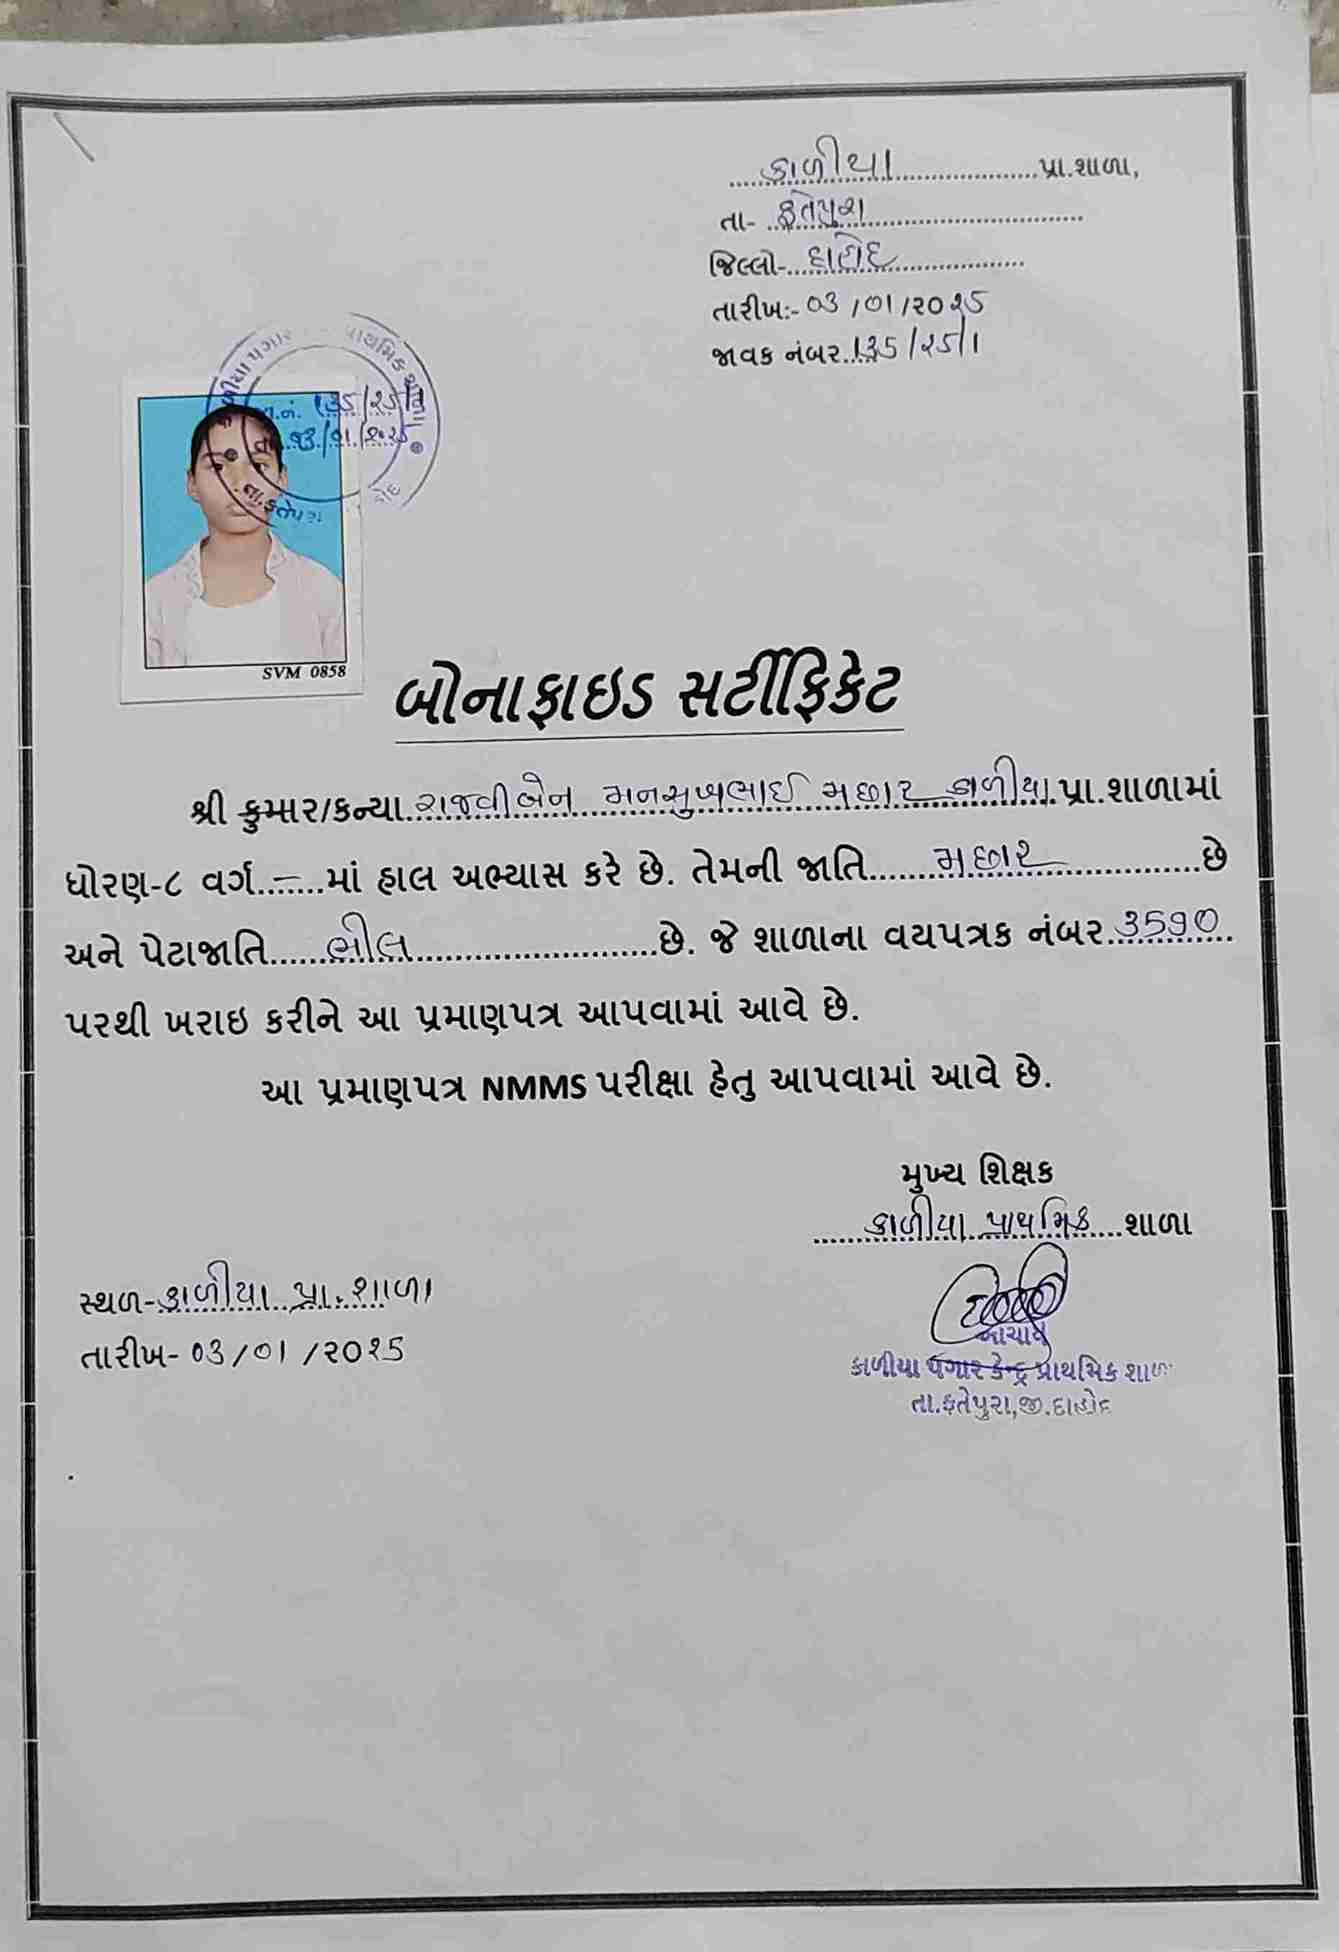 કાળીયા પ્રા.શાળા,
તા- ફતેપુરા
જિલ્લો- દાહોદ
તારીખ:- ૦૩ /૦૧ /૨૦૨૫
જાવક નંબર.૧૩૬/૨૫/૧
પ્રાથમિક શાળા
જા.નં. ૧૩૬/૨૫/૧
તા. ૦૩/૦૧/૨૦૨૫
તા.ફતેપુરા
SVM 0858
બોનાફાઇડ સર્ટીફિકેટ
શ્રી કુમાર/કન્યા રાજવીબેન મનસુખભાઈ મછાર કાળીયા પ્રા.શાળામાં
ધોરણ-૮ વર્ગ - માં હાલ અભ્યાસ કરે છે. તેમની જાતિ મછાર છે
અને પેટાજાતિ ભીલ છે. જે શાળાના વયપત્રક નંબર ૩૬૧૦
પરથી ખરાઇ કરીને આ પ્રમાણપત્ર આપવામાં આવે છે.
આ પ્રમાણપત્ર NMMS પરીક્ષા હેતુ આપવામાં આવે છે.
મુખ્ય શિક્ષક
કાળીયા પ્રાથમિક શાળા
સ્થળ- કાળીયા પ્રા. શાળા
તારીખ- ૦૩/૦૧ /૨૦૨૫
આચાર્ય
કાળીયા વગાર કેન્દ્ર પ્રાથમિક શાળા
તા.ફતેપુરા,જી.દાહોદ